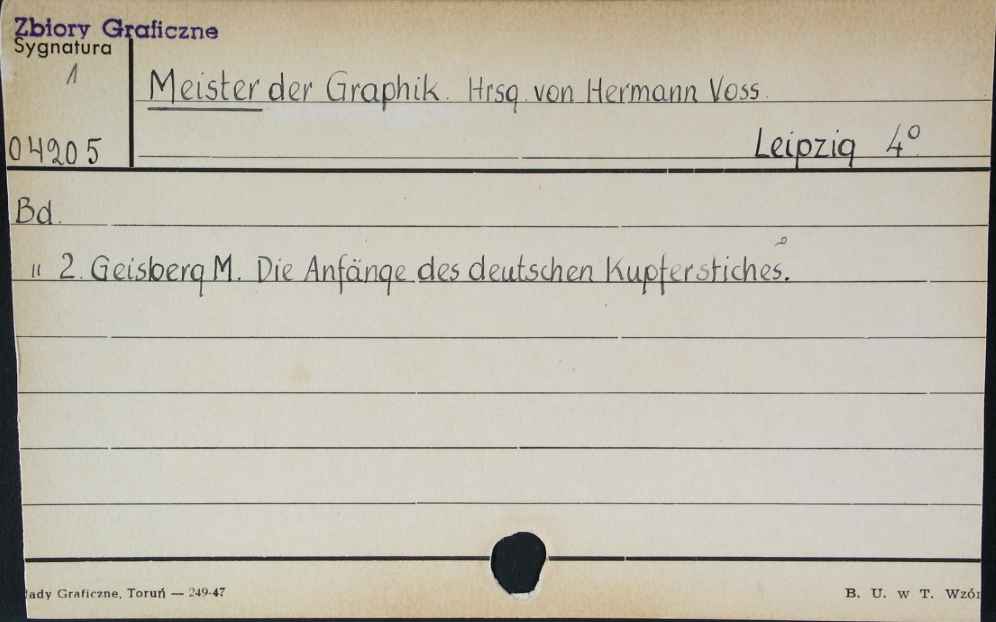 Zbiory Graficzne
Sygnatura
1
04205
Meister der Graphik. Hrsg. von Hermann Voss.
Leipzig 4°
Bd.
" 2. Geisberg M. Die Anfänge des deutschen Kupferstiches.
Graficzne, Toruń — 249-47
B. U. w T. Wzór